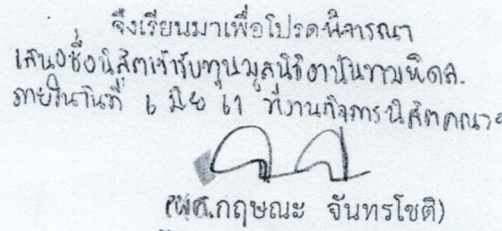 จึงเรียนมาเพื่อโปรดพิจารณา
เสนอชื่อนิสิตเข้ารับทุนมูลนิธิอานันทมหิดล
ภายในวันที่ 6 มิย 61 ที่งานกิจการนิสิตคณะฯ
(ผศ.กฤษณะ จันทรโชติ)